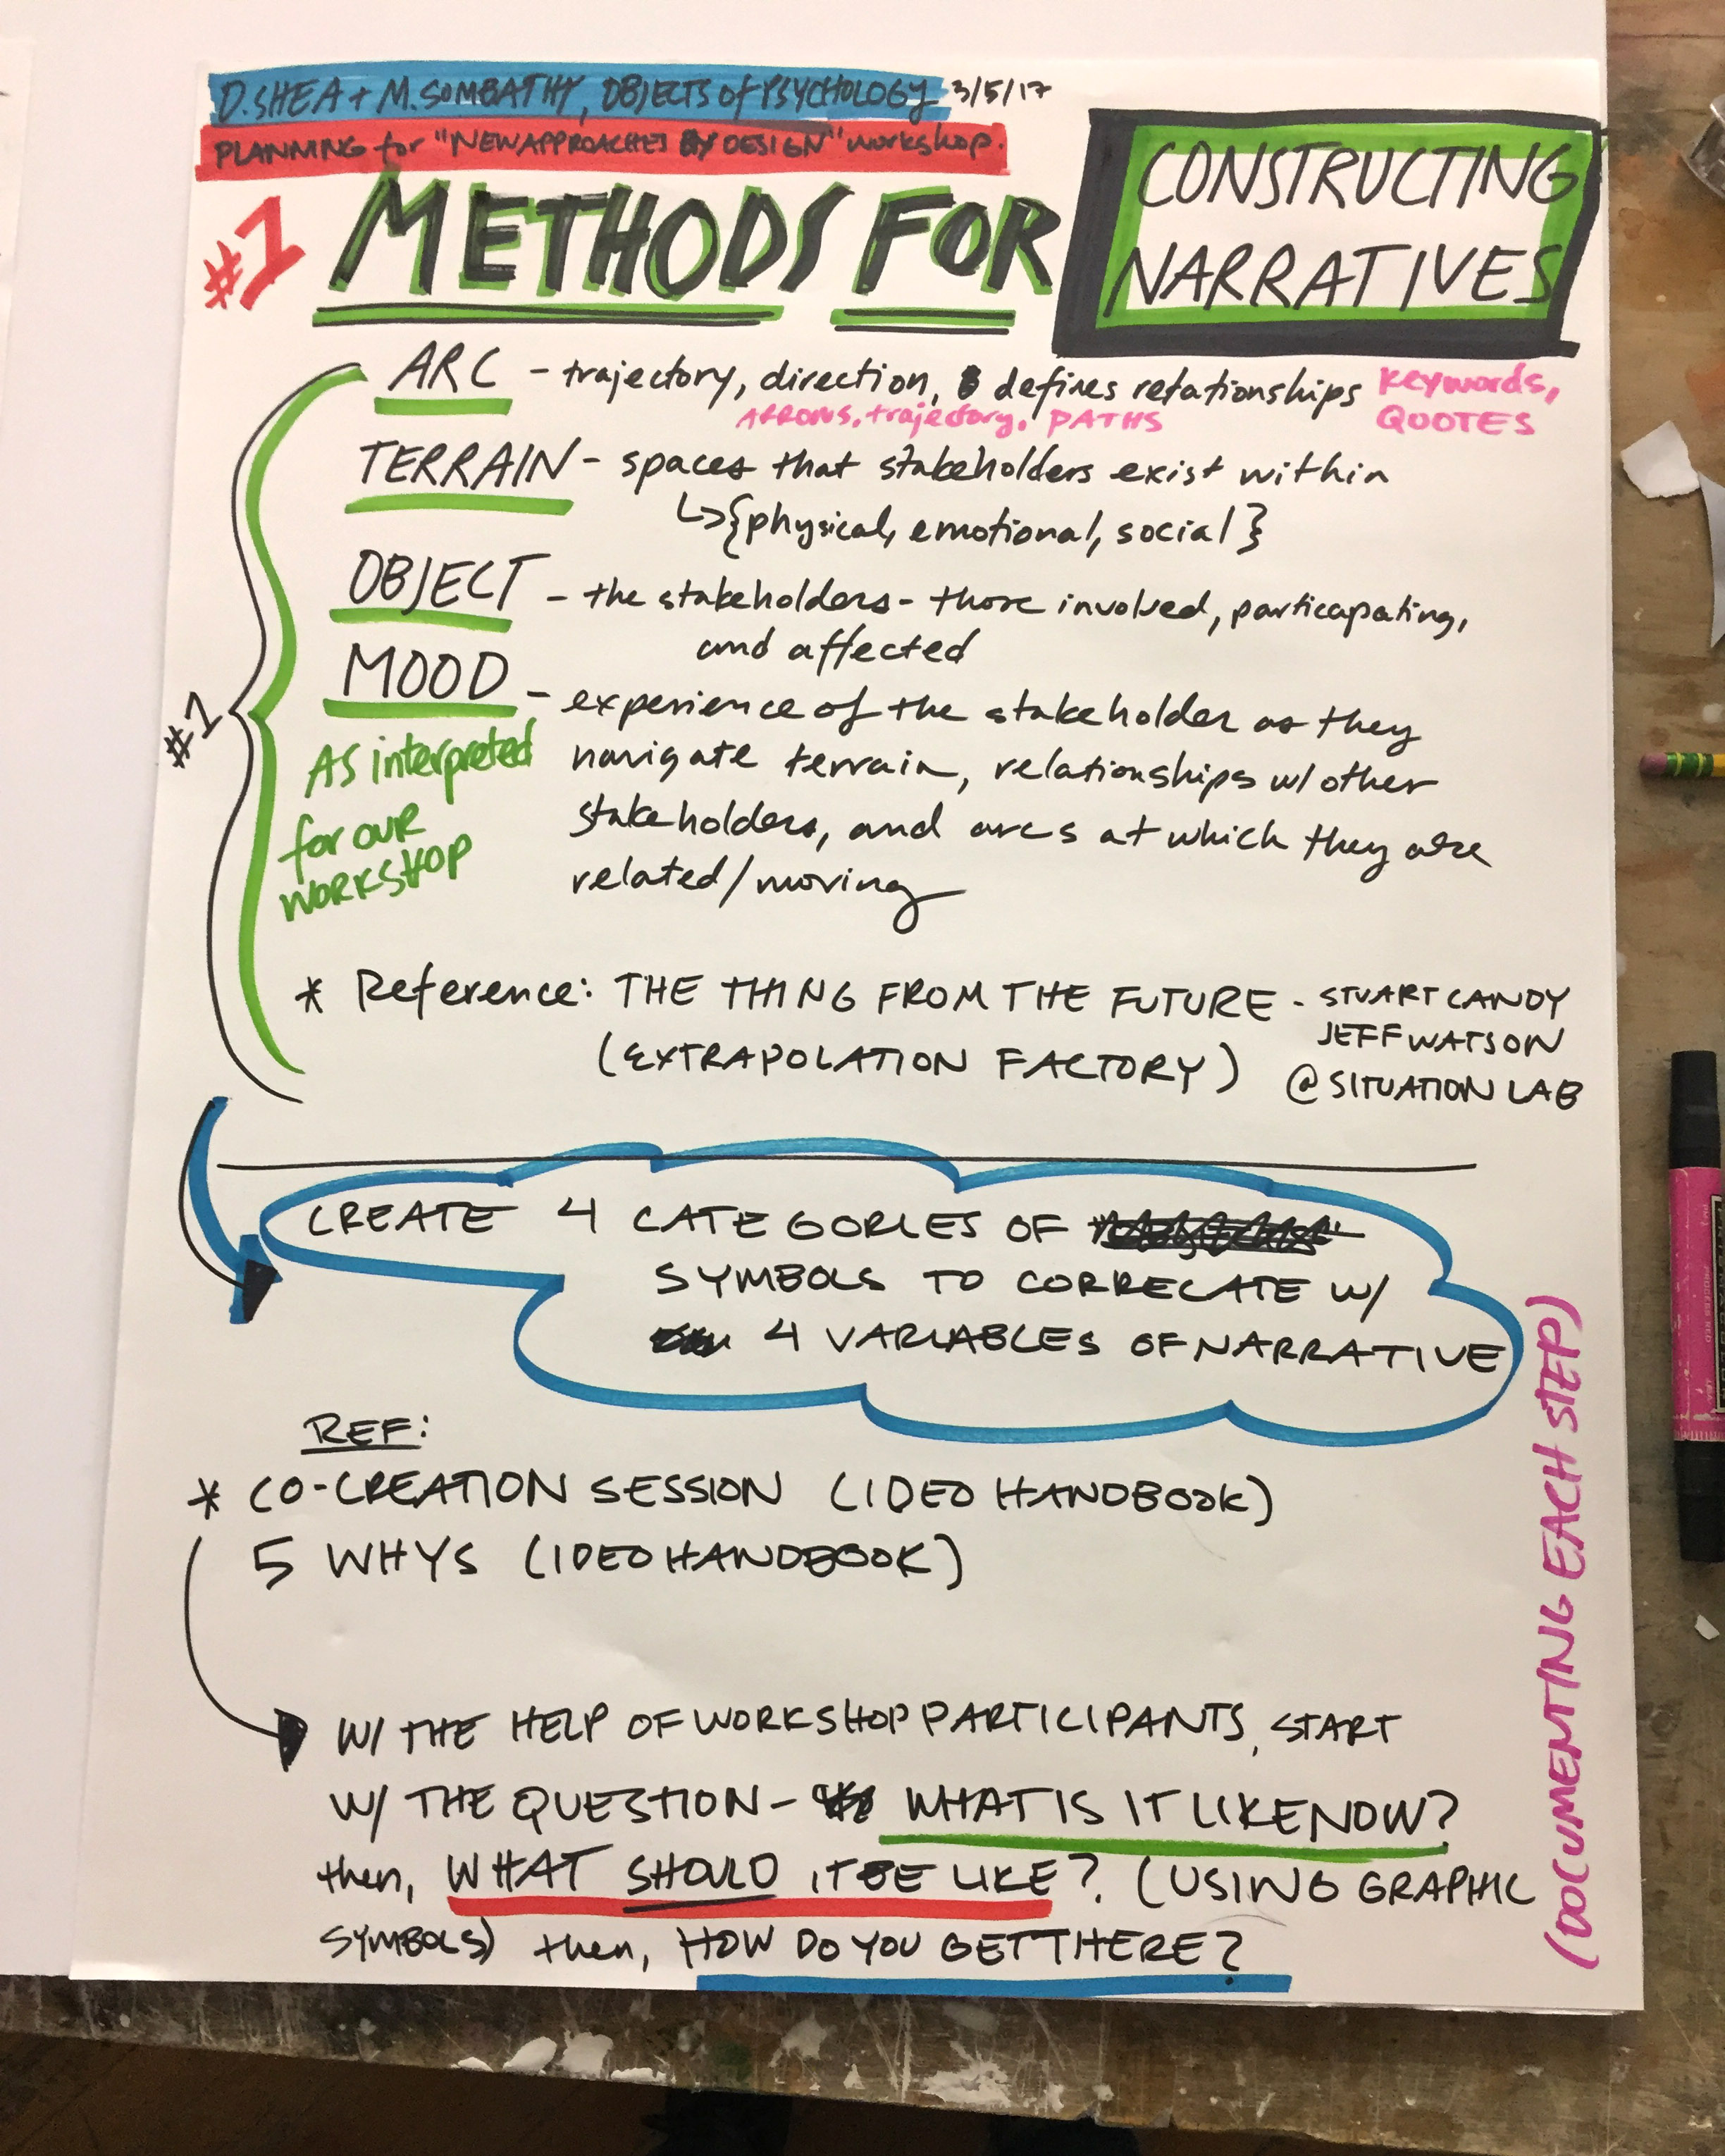 D. SHEA + M. SOMBATHY, OBJECTS of PSYCHOLOGY 3/5/17
PLANNING for "NEW APPROACHES BY DESIGN" workshop.
#1 METHODS FOR
CONSTRUCTING
NARRATIVES
ARC - trajectory, direction, & defines relationships
keywords,
QUOTES
ARROWS, trajectory, PATHS
TERRAIN - spaces that stakeholders exist within
↳{physical, emotional, social}
OBJECT - the stakeholders - those involved, particapating,
and affected
MOOD - experience of the stakeholder as they
navigate terrain, relationships w/ other
stakeholders, and arcs at which they are
related/moving
#1
As interpreted
for our
WORKSHOP
* Reference: THE THING FROM THE FUTURE - STUART CANDY
JEFF WATSON
(EXTRAPOLATION FACTORY) @ SITUATION LAB
CREATE 4 CATEGORIES OF
SYMBOLS TO CORRELATE W/
4 VARIABLES OF NARRATIVE
REF:
* CO-CREATION SESSION (IDEO HANDBOOK)
5 WHYS (IDEO HANDBOOK)
W/ THE HELP OF WORKSHOP PARTICIPANTS, START
W/ THE QUESTION - WHAT IS IT LIKE NOW?
then, WHAT SHOULD IT BE LIKE? (USING GRAPHIC
SYMBOLS) then, HOW DO YOU GET THERE?
(DOCUMENTING EACH STEP)